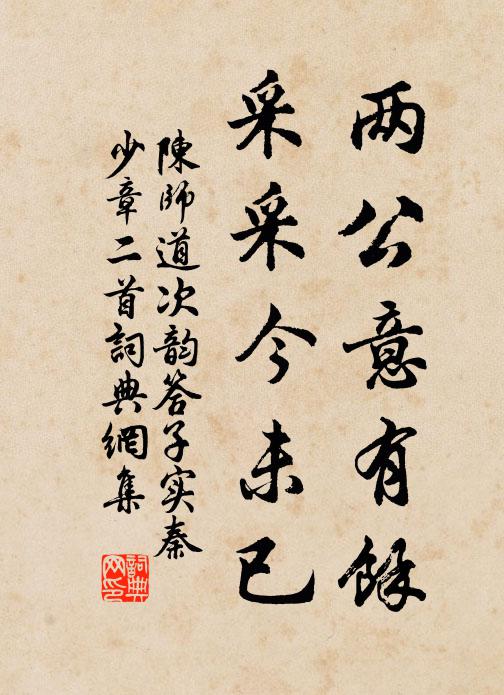 两公意有馀
采采今未已
陳師道次韵答子实秦
少章二首詞典網集
詞典网印